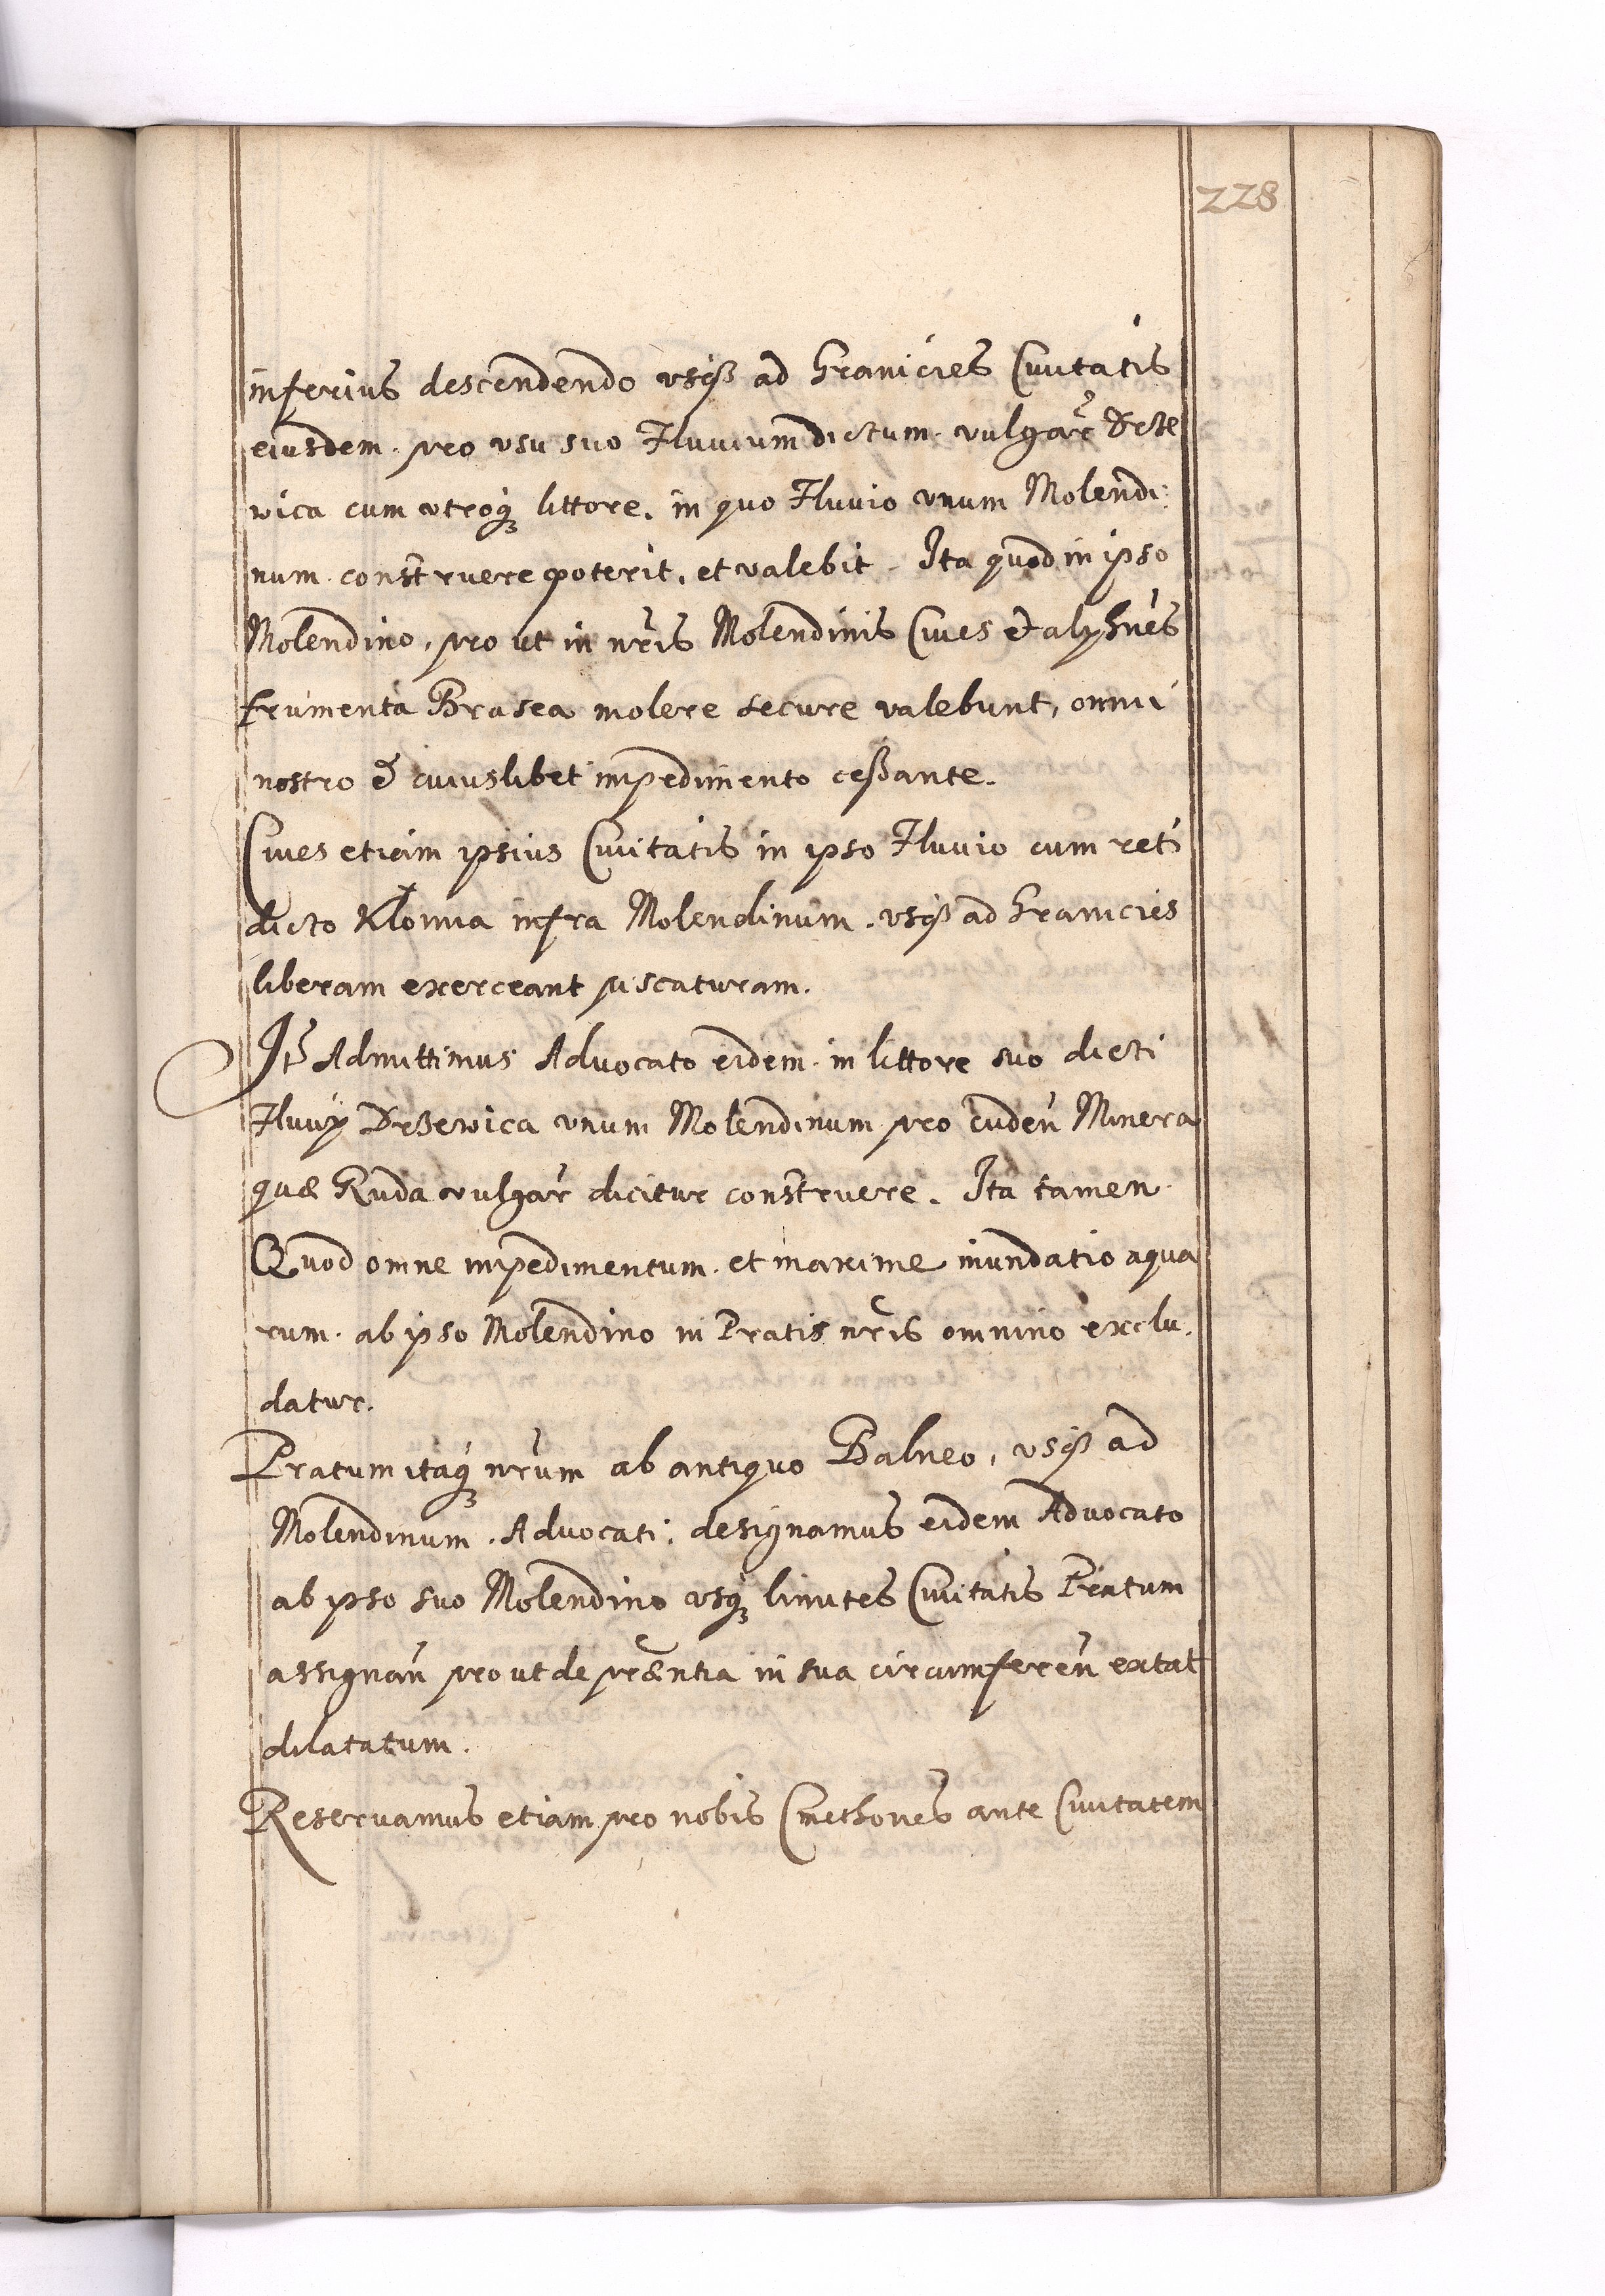 228
inferius descendendo vsqꝫ ad Granicies Civitatis
eiusdem pro vsu suo Fluvium dictum vulgar̃ Drze
wica cum vtroqꝫ littore, in quo Fluvio vnum Molendi:
num construere poterit, et valebit. Ita quod in ipso
Molendino, pro ut in nr̃is Molendinis Cives et alÿ hñes
frumenta Brasea molere secure valebunt, omni
nostro et cuiuslibet impedimento ceßante.
Cives etiam ipsius Civitatis in ipso Fluvio cum reti
dicto Kłomia infra Molendinum vsqꝫ ad Granicies
liberam exerceant piscaturam.
It̃ Admittimus Advocato eidem in littore suo dicti
Fluvÿ Drzewica vnum Molendinum pro cudeñ Minera
quæ Ruda vulgar̃ dicitur construere. Ita tamen
Quod omne impedimentum et maxime inundatio aqua
rum ab ipso Molendino in Pratis nr̃is omnino exclu,
datur.
Pratum itaqꝫ nr̃um ab antiquo Balneo, vsqꝫ ad
Molendinum Advocati; designamus eidem Advocato
ab ipso suo Molendino vsqꝫ limites Civitatis Pratum
assignañ prout de præñtia in sua circumfereñ extat
dilatatum.
Reservamus etiam pro nobis Cmethones ante Civitatem